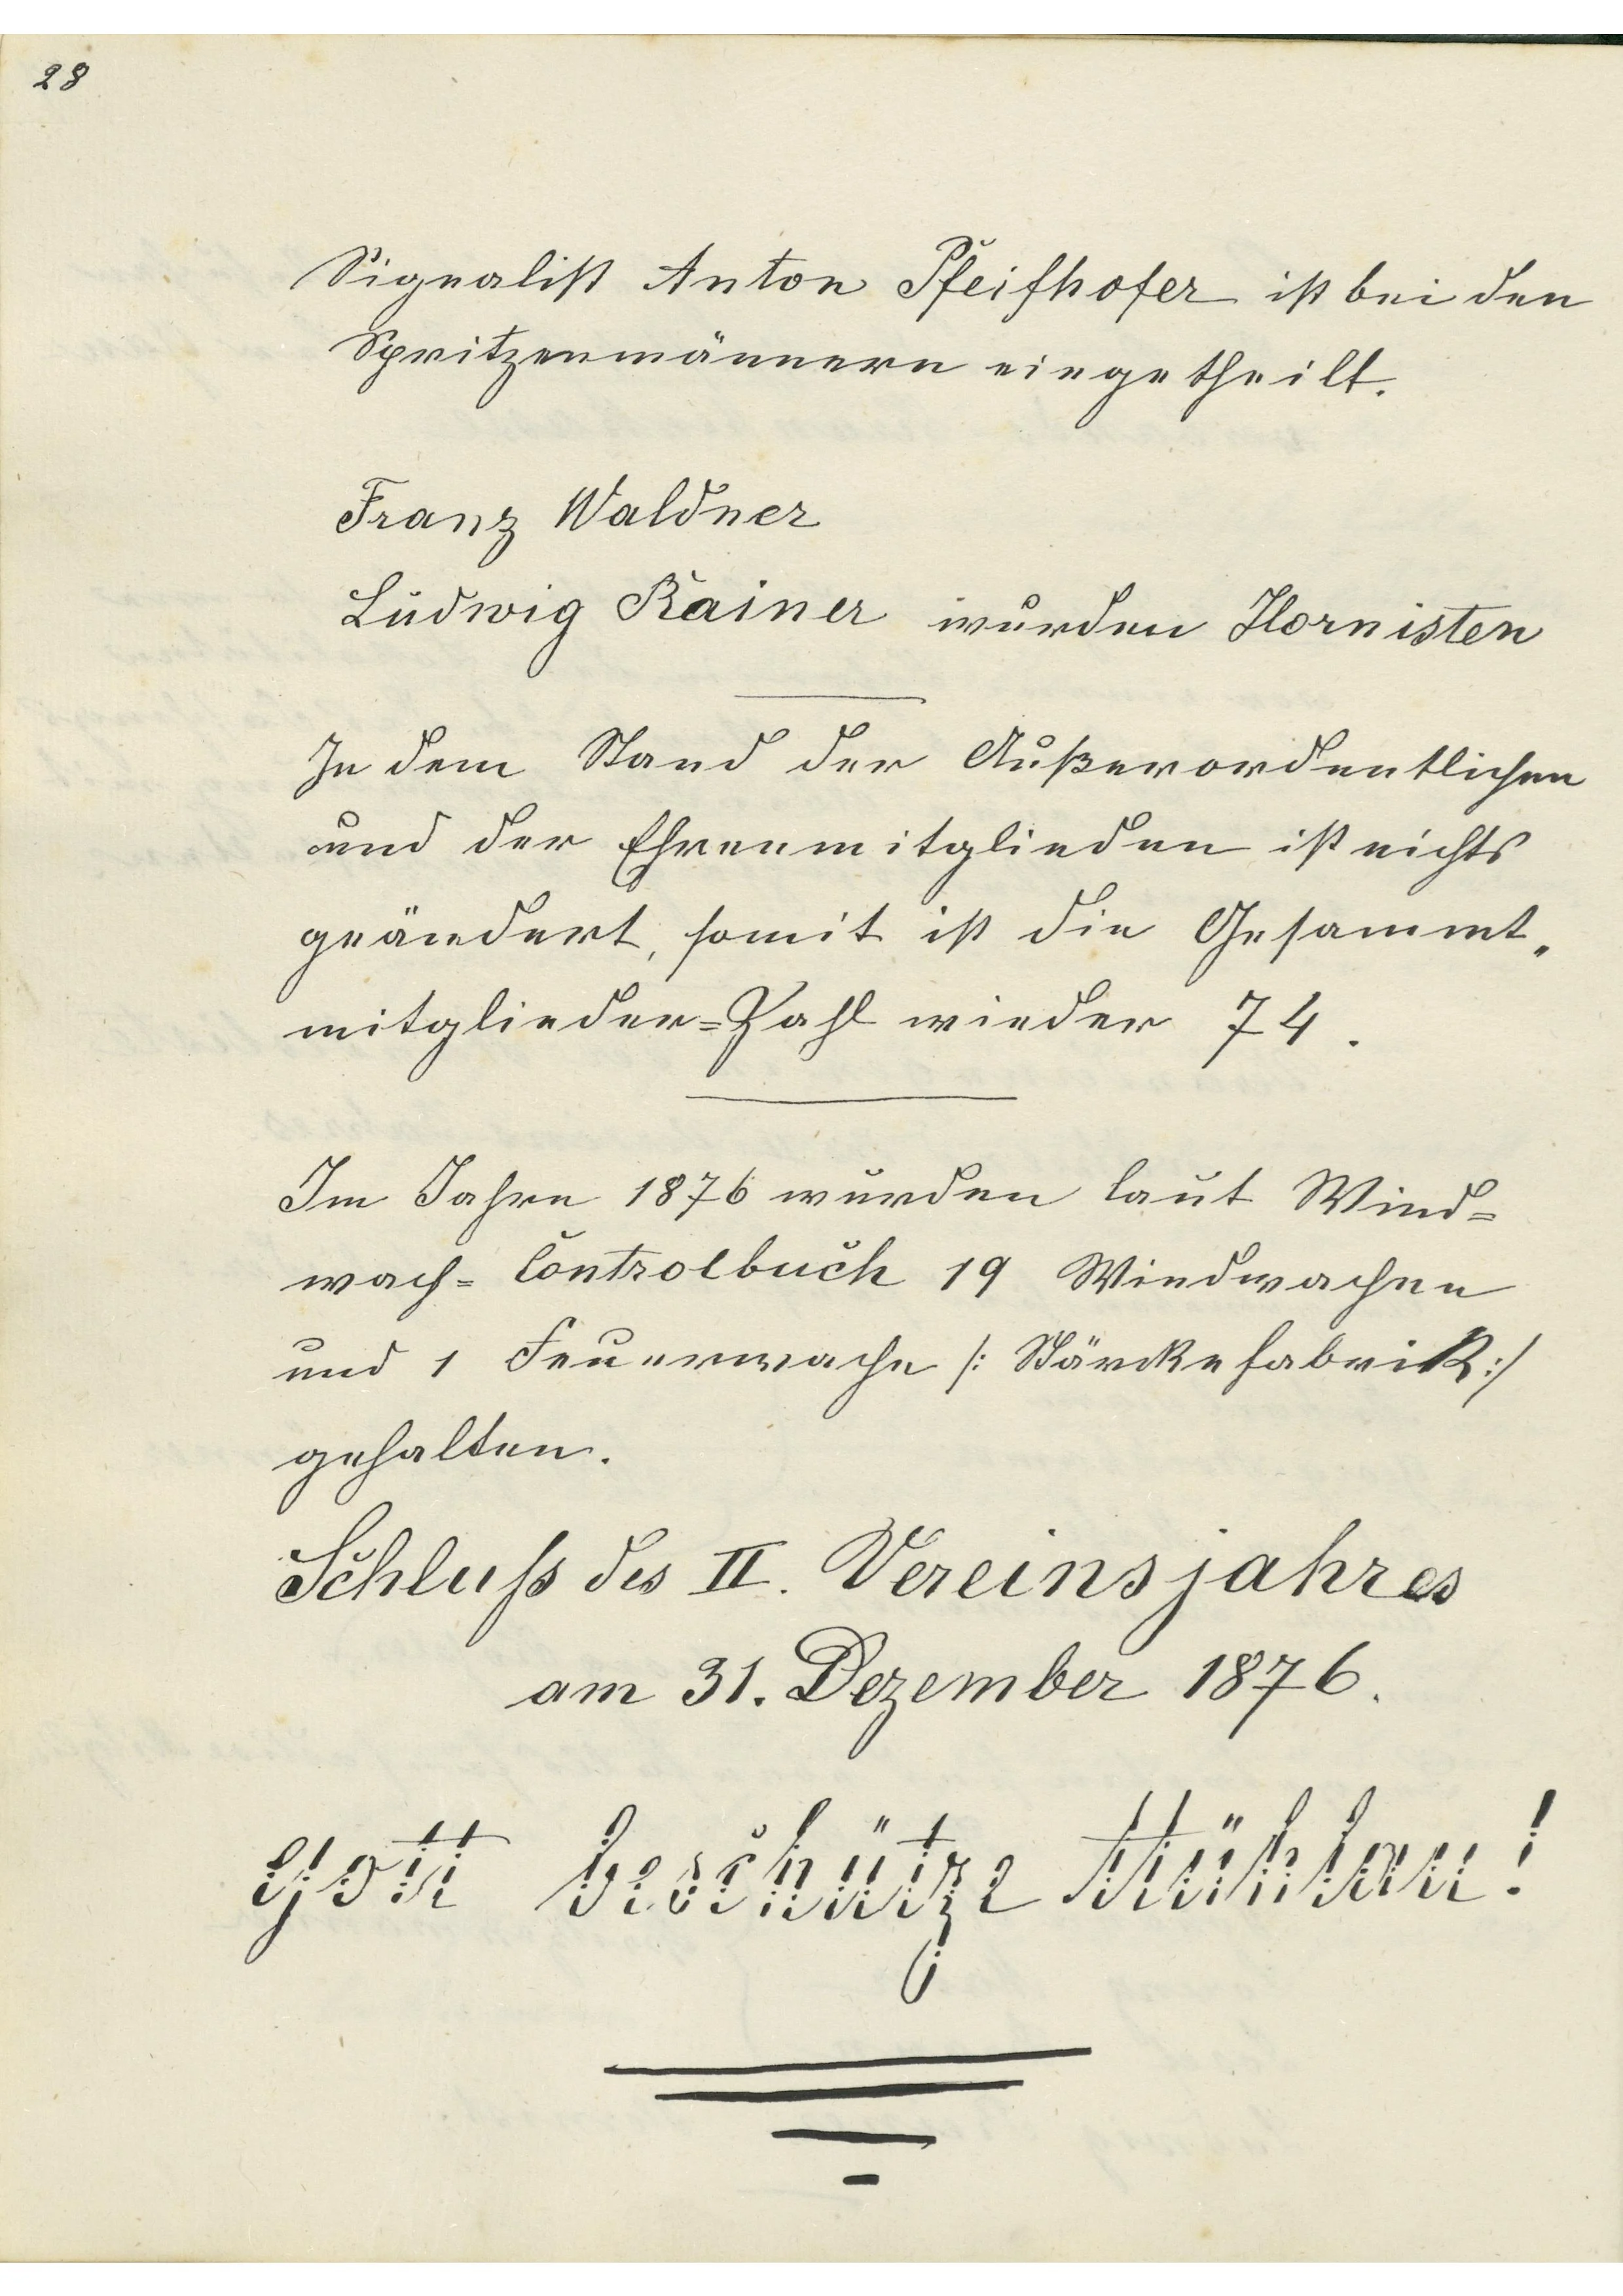 28
Signalist Anton Pfeifhofer ist bei den
Spritzenmännern eingetheilt.
Franz Waldner
Ludwig Rainer wurden Hornisten
In dem Stand der Außerordentlichen
und der Ehrenmitglieden ist nichts
geändert, somit ist die Gesammt„
mitglieder=Zahl wieder 74.
Im Jahre 1876 wurden laut Wind=
wach= Controlbuch 19 Windwachen
und 1 Feuerwache /: Stärkefabrik :/
gehalten.
Schluß des II. Vereinsjahres
am 31. Dezember 1876.
Gott beschütze Mühlau!